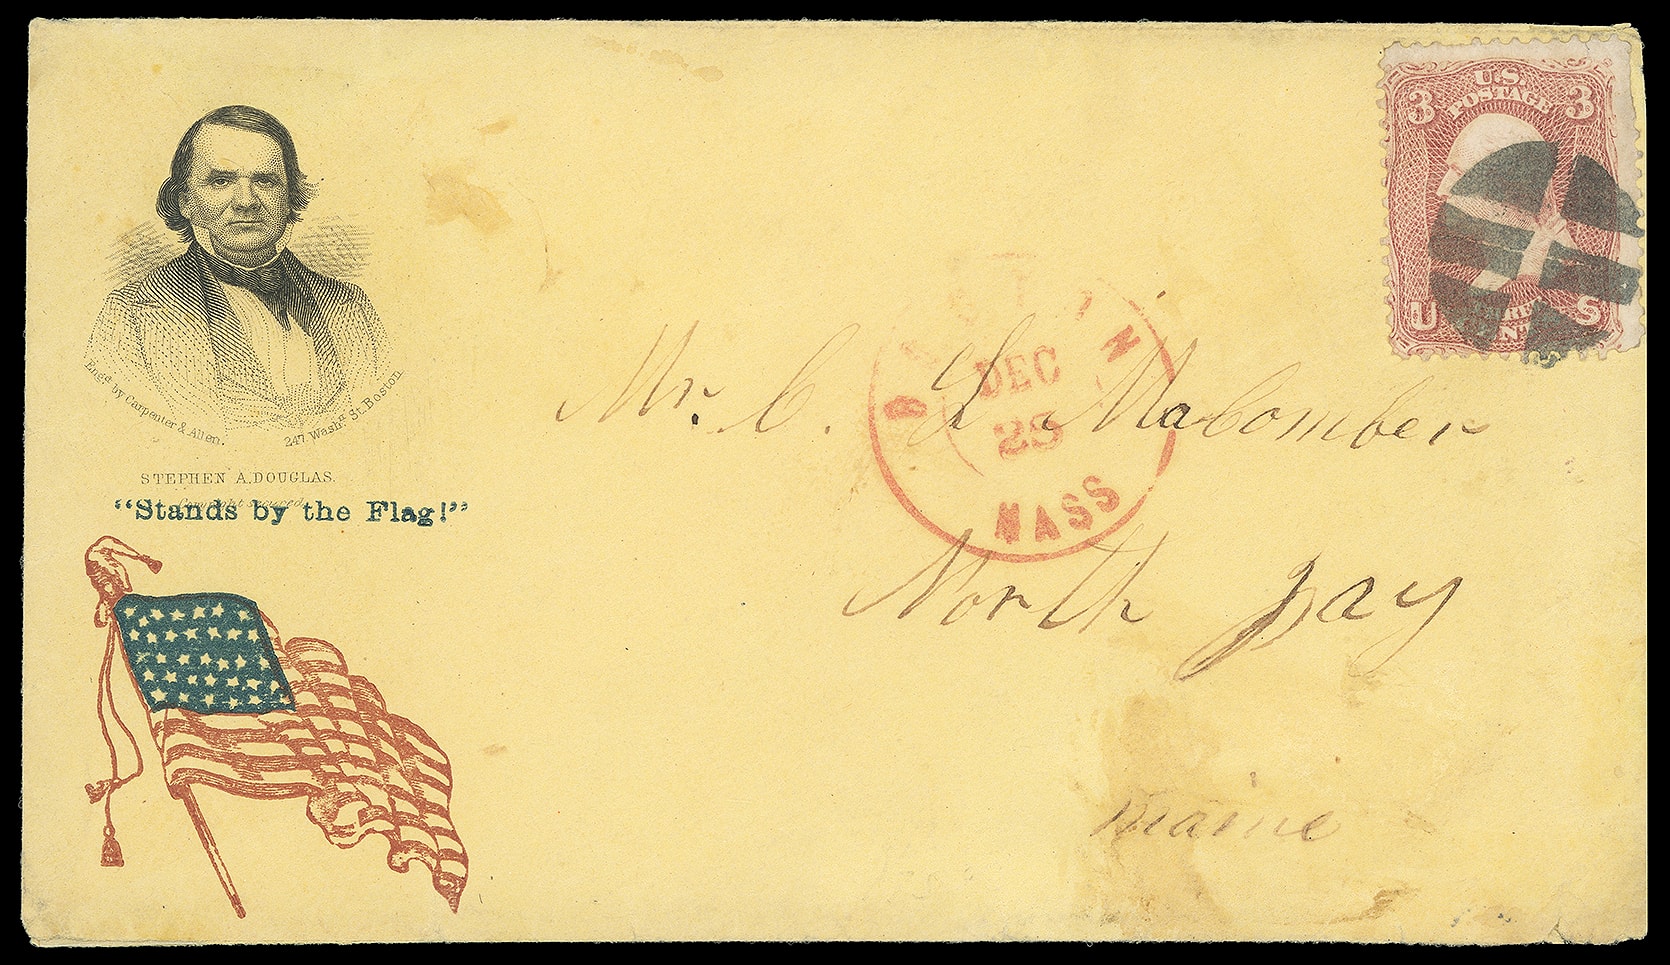 Engd. by Carpenter & Allen. 247 Washn. St. Boston.
STEPHEN A. DOUGLAS.
Copyright secured.
"Stands by the Flag!"
U.S.
POSTAGE
3 3
U S
DEC
29
MASS
Mr. C. L. Macomber
North Jay
Maine